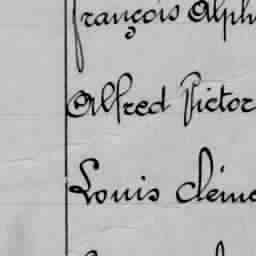 françois Alph
Alfred Victor
Louis cléme